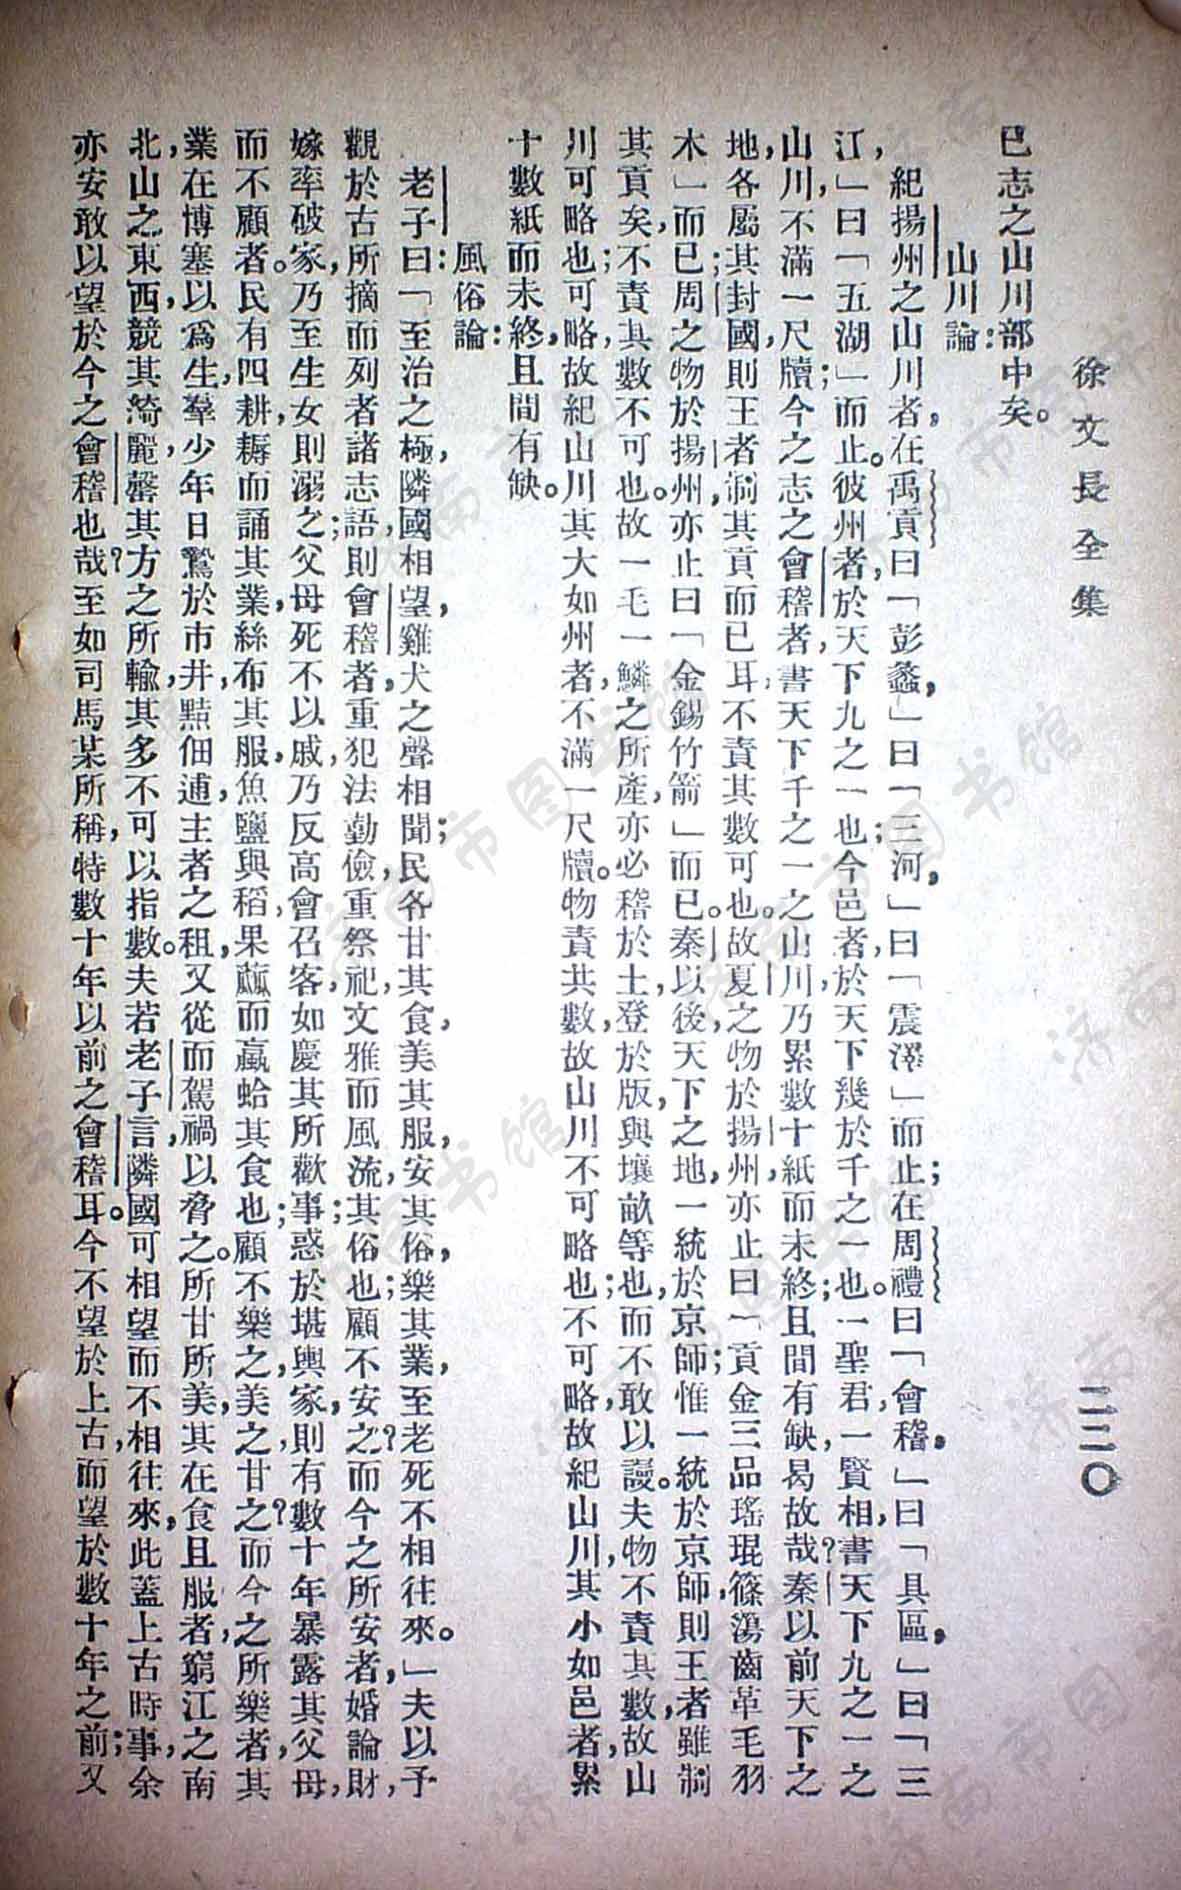 徐文長全集
二二〇
已志之山川部中矣。
山川論：
紀揚州之山川者，在禹貢曰「彭蠡，」曰「三河，」曰「震澤」而止；在周禮曰「會稽，」曰「具區，」曰「三
江，」曰「五湖」而止。彼州者，於天下九之一也；今邑者，於天下幾於千之一也。一聖君，一賢相，書天下九之一之
山川，不滿一尺牘；今之志之會稽者，書天下千之一之山川，乃累數十紙而未終；且間有缺，曷故哉？秦以前天下之
地，各屬其封國，則王者制其貢而已耳，不責其數可也。故夏之物於揚州，亦止曰「貢金三品瑤琨篠簜齒革毛羽
木」而已；周之物於揚州，亦止曰「金錫竹箭」而已。秦以後，天下之地，一統於京師；惟一統於京師，則王者雖制
其貢矣，不責其數不可也。故一毛一鱗之所產，亦必稽於土，登於版，與壤畝等也，而不敢以謾。夫物不責其數，故山
川可略也；可略，故紀山川其大如州者，不滿一尺牘。物責其數，故山川不可略也；不可略，故紀山川，其小如邑者，累
十數紙而未終，且間有缺。
風俗論：
老子曰：「至治之極，隣國相望，雞犬之聲相聞；民各甘其食，美其服，安其俗，樂其業，至老死不相往來。」夫以予
觀於古所摘而列者諸志語，則會稽者，重犯法，勤儉，重祭祀，文雅而風流，其俗也；顧不安之？而今之所安者，婚論財，
嫁率破家，乃至生女則溺之；父母死不以戚，乃反高會召客，如慶其所歡事；惑於堪輿家，則有數十年暴露其父母，
而不顧者。民有四，耕耨而誦其業，絲布其服，魚鹽與稻，果蓏而蠃蛤其食也；顧不樂之，美之，甘之？而今之所樂者，其
業在博塞以爲生，羣少年日騖於市井，黠佃逋主者之租，又從而駕禍以脅之。所甘所美，其在食且服者，窮江之南
北，山之東西，競其漪麗，罄其方之所輸，其多不可以指數。夫若老子言，隣國可相望而不相往來，此蓋上古時事，余
亦安敢以望於今之會稽也哉？至如司馬某所稱，特數十年以前之會稽耳。今不望於上古，而望於數十年之前；又